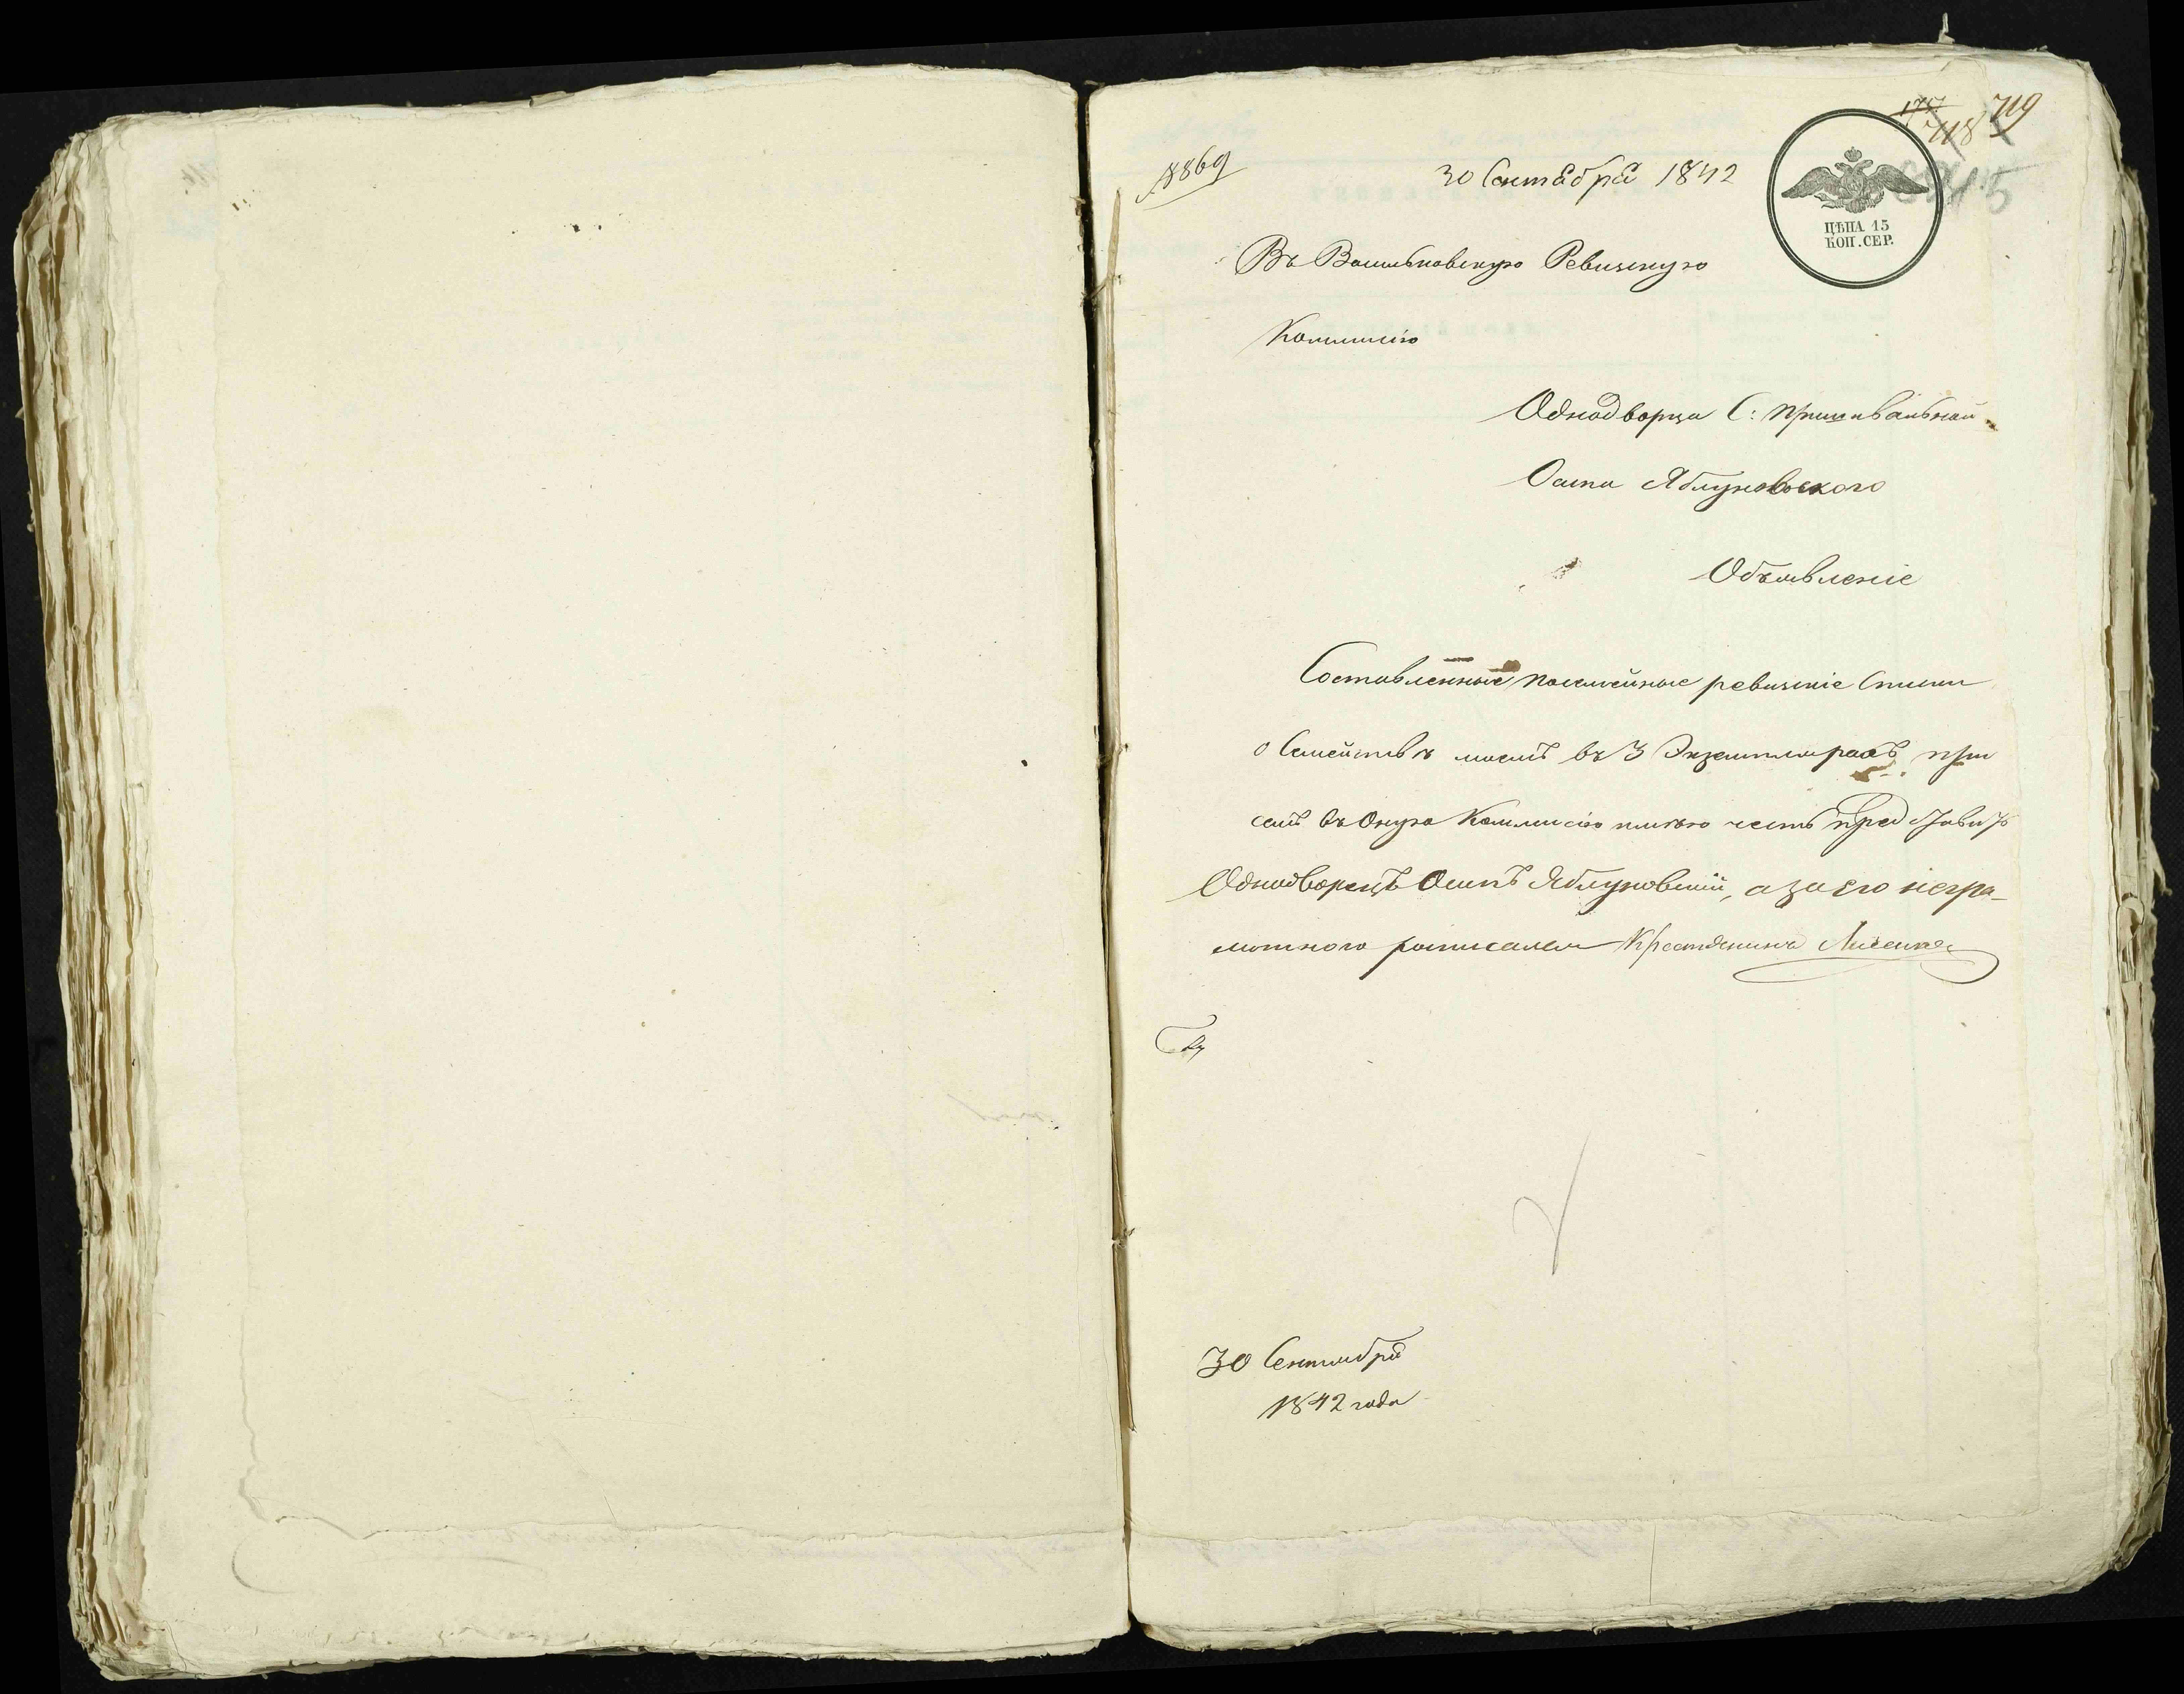 719
718
8869
30 Сентября 1842
ЦѢНА 15
КОП. СЕР.
Въ Васильковскую Ревизскую
Коммисію
Однодворца С:
Осипа Яблуновского
Объявленіе
Составленные посемейные ревизкіе Списки
о Семействѣ моемъ въ 3 Экземплярахъ при
семъ въ Оную Коммисію имѣю честь представить
Однодворецъ Осипъ Яблуновскій, а за его негра-
мотного росписался Крестянинъ
30 Сентября
1842 года